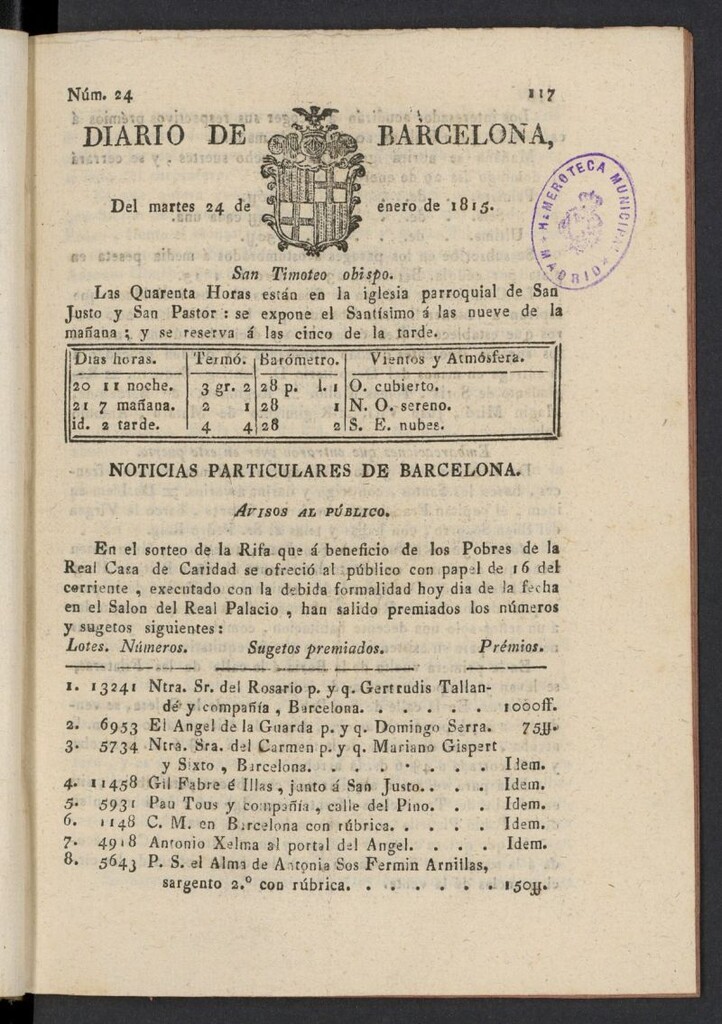 Núm. 24 117
DIARIO DE BARCELONA,
Del martes 24 de enero de 1815.
HEMEROTECA MUNICIPAL
MADRID
San Timoteo obispo.
Las Quarenta Horas están en la iglesia parroquial de San
Justo y San Pastor : se expone el Santísimo á las nueve de la
mañana ; y se reserva á las cinco de la tarde.
Dias horas. Termó. Barómetro. Vientos y Atmósfera.
20 11 noche. 3 gr. 2 28 p. l. 1 O. cubierto.
21 7 mañana. 2 1 28 1 N. O. sereno.
id. 2 tarde. 4 4 28 2 S. E. nubes.
NOTICIAS PARTICULARES DE BARCELONA.
AVISOS AL PÚBLICO.
En el sorteo de la Rifa que á beneficio de los Pobres de la
Real Casa de Caridad se ofreció al público con papel de 16 del
corriente , executado con la debida formalidad hoy dia de la fecha
en el Salon del Real Palacio , han salido premiados los números
y sugetos siguientes :
Lotes. Números. Sugetos premiados. Prémios.
1. 13241 Ntra. Sr. del Rosario p. y q. Gertrudis Tallan-
dé y compañía , Barcelona. . . . . . 1000ff.
2. 6953 El Angel de la Guarda p. y q. Domingo Serra. 75ff.
3. 5734 Ntra. Sra. del Carmen p. y q. Mariano Gispert
y Sixto , Barcelona. . . . . . . . Idem.
4. 11458 Gil Fabre é Illas , junto á San Justo. . . . Idem.
5. 5931 Pau Tous y compañía , calle del Pino. . . Idem.
6. 1148 C. M. en Barcelona con rúbrica. . . . . Idem.
7. 4918 Antonio Xelma al portal del Angel. . . . Idem.
8. 5643 P. S. el Alma de Antonia Sos Fermin Arnillas,
sargento 2.º con rúbrica. . . . . . . . 150ff.